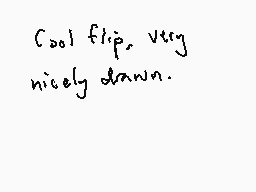 Cool flip, very
nicely drawn.